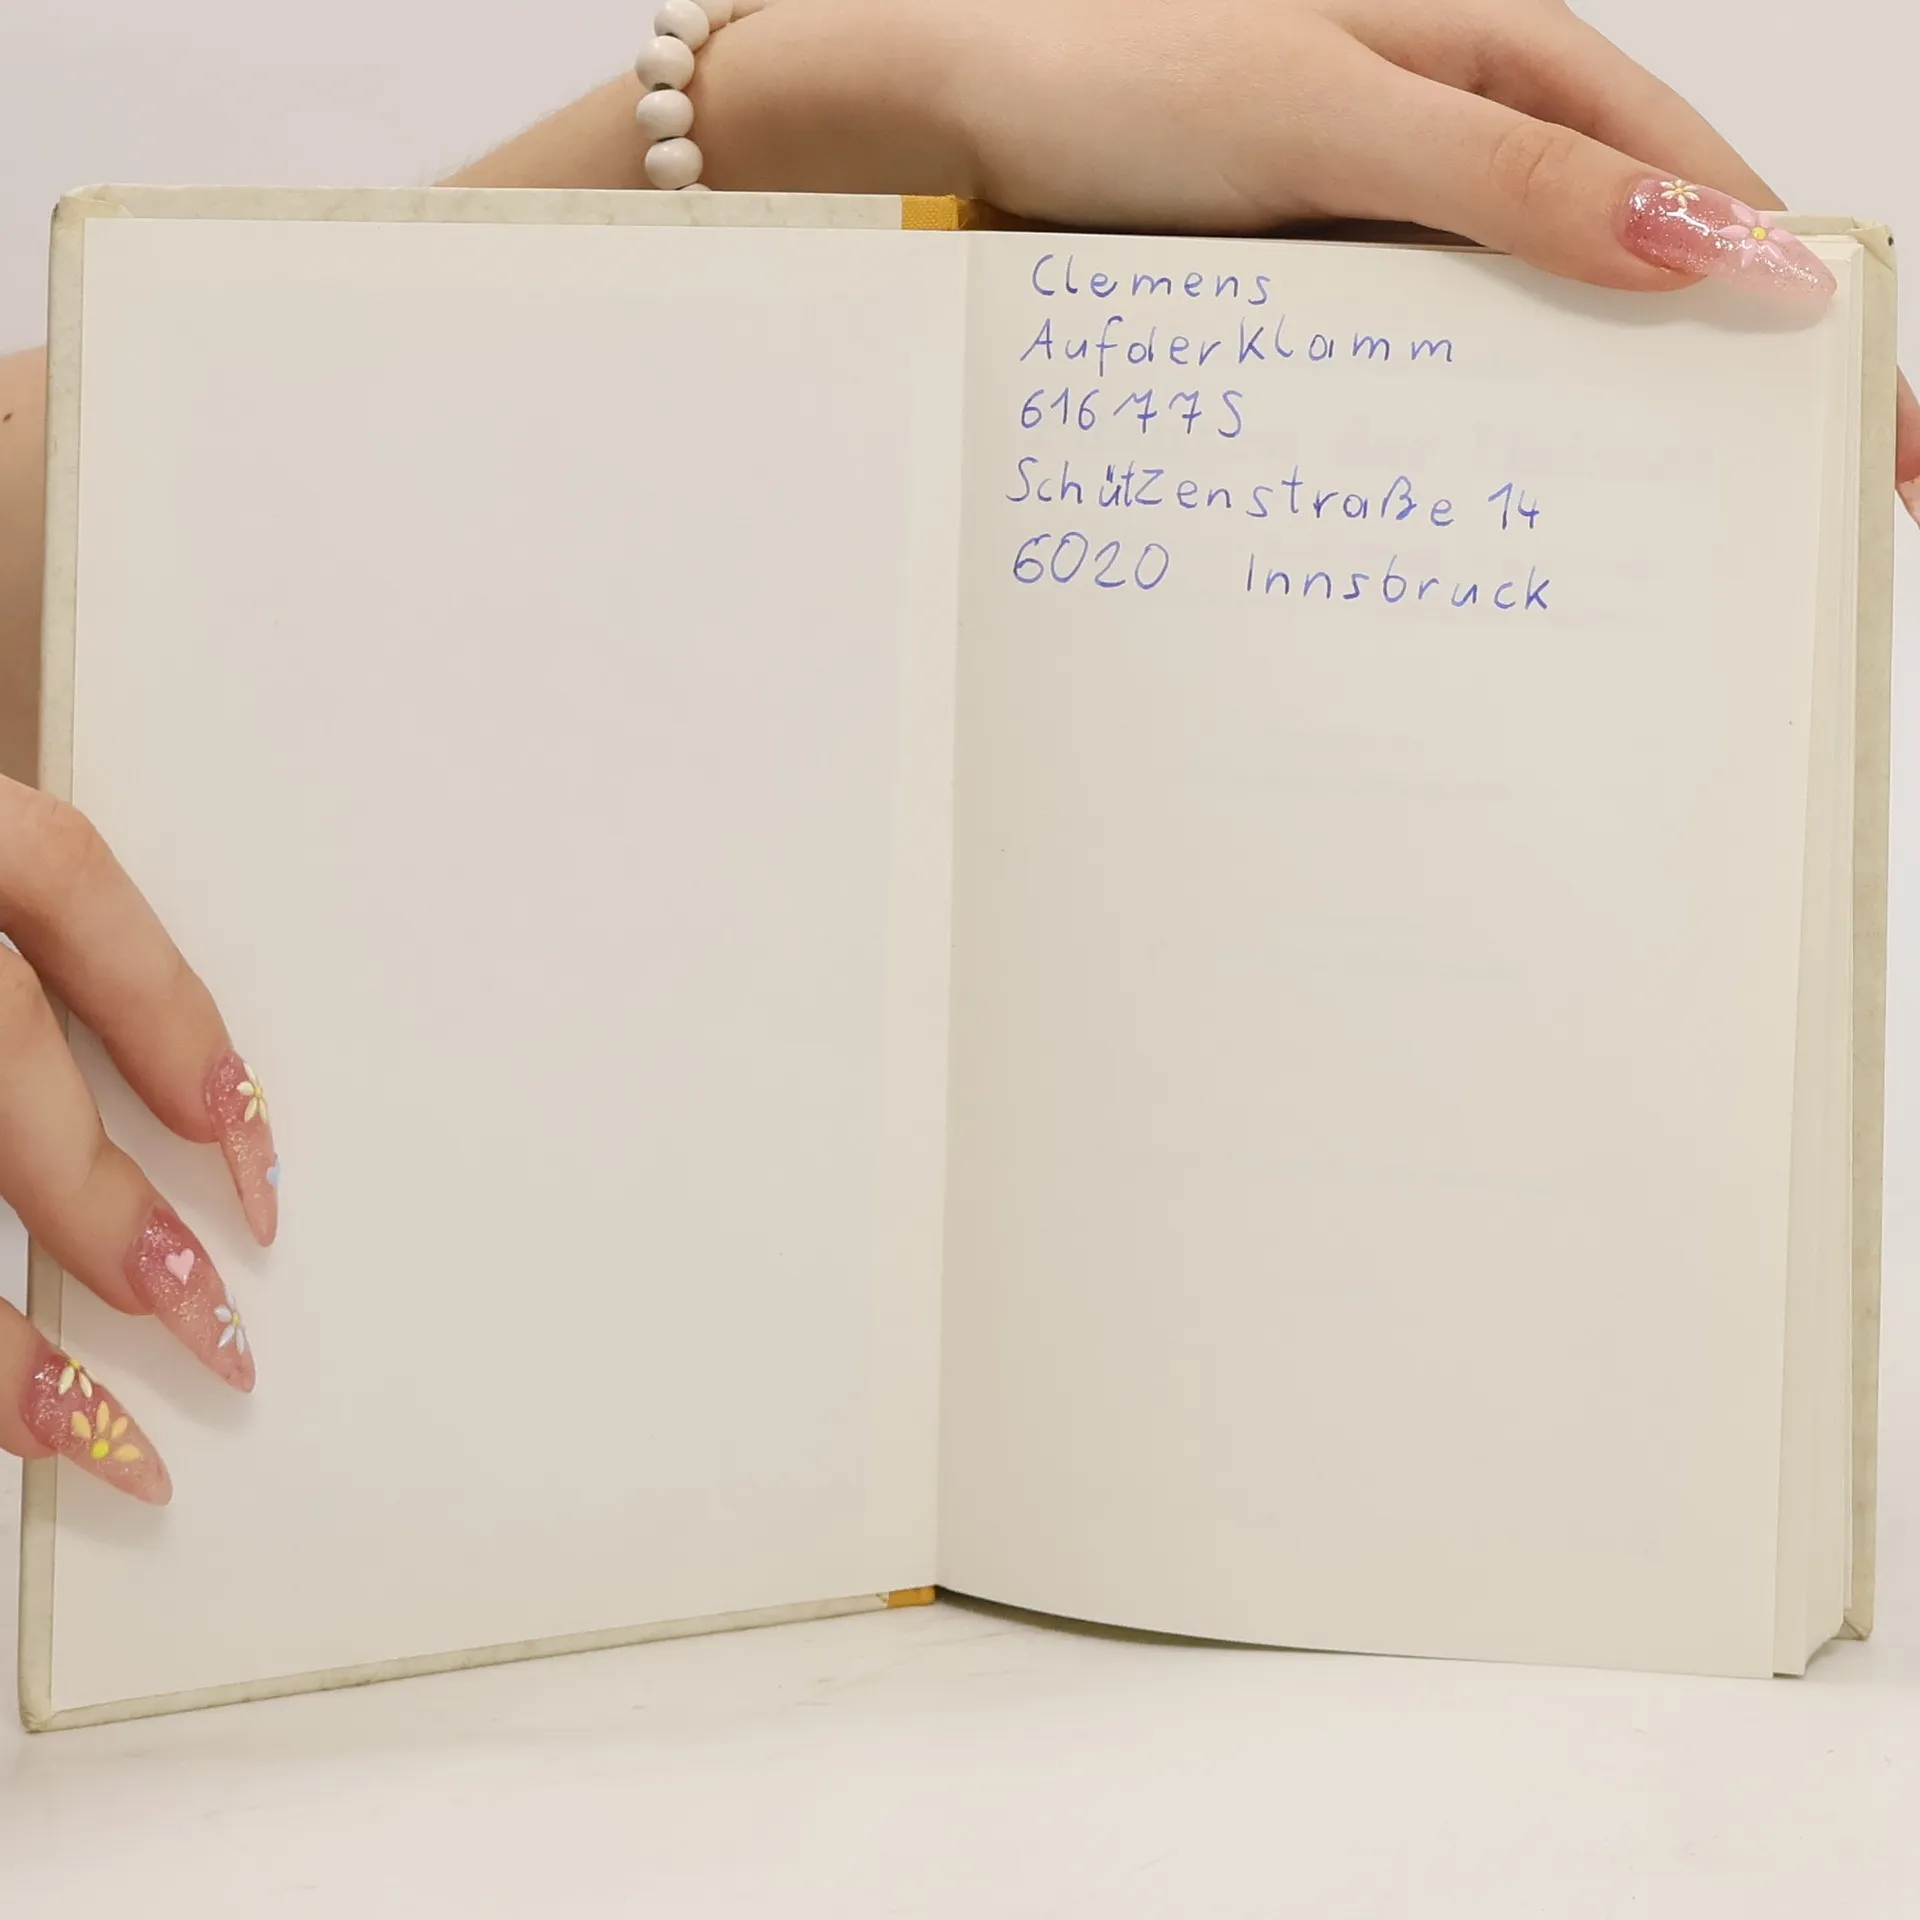 Clemens
Aufderklamm
616775
Schützenstraße 14
6020 Innsbruck